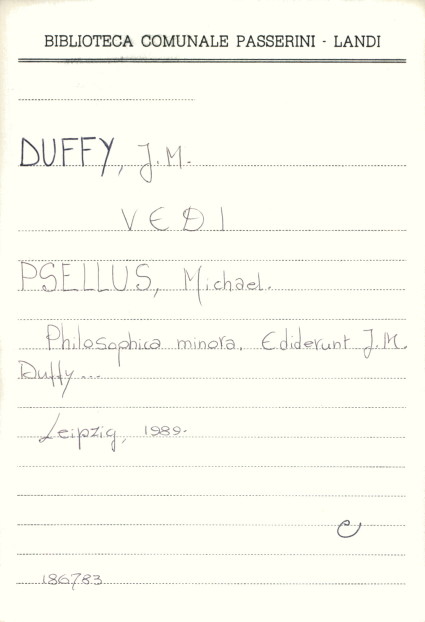 BIBLIOTECA COMUNALE PASSERINI - LANDI
DUFFY, J.M.
VEDI
PSELLUS, Michael.
Philosophica minora. Ediderunt J.M.
Duffy...
Leipzig, 1989.
C
186783